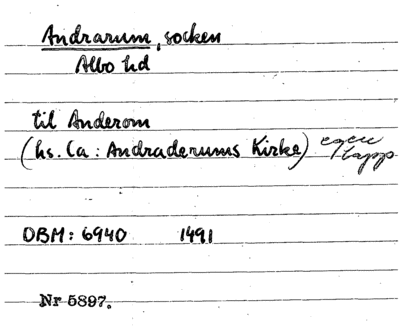 Andrarum, socken
Albo hd
til Anderom
(hs. Ca: Andraderums Kirke) egen lapp
DBM: 6940 1491
Nr 5897.